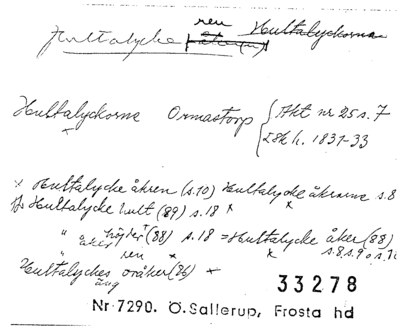 Hultalycke ren Hultalyckorna
Hultalyckorna Ormastorp { Akt nr 25 s. 7
LSk h. 1831-33
x Hultalycke åkren (s.10) Hultalycke åkrarne s.8
Hultalycke hult (89) s.18 x
" höjder (88) s.18 = Hultalycke åker (88)
åker x s.8, s.9 o s.10
" ren x
Hultalyckes oråker (86) x
äng
33278
Nr 7290. Ö. Sallerup, Frosta hd